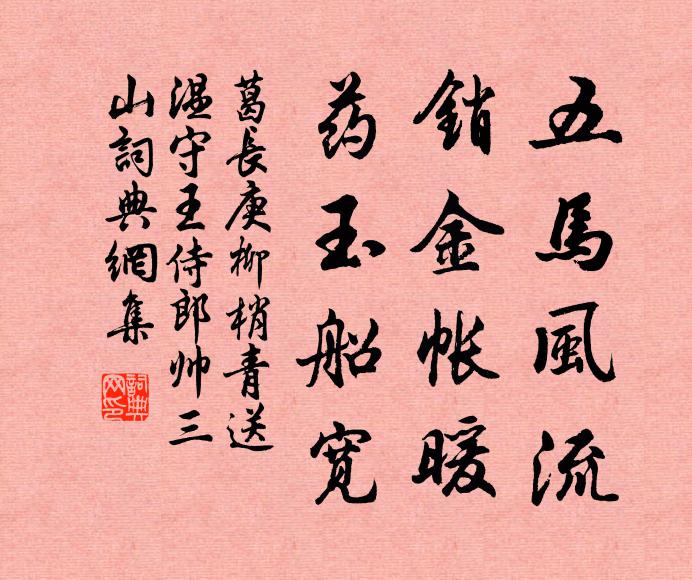 五馬風流
銷金帐暖
药玉船宽
葛長庚柳梢青送
温守王侍郎帅三
山詞典網集
詞典网印